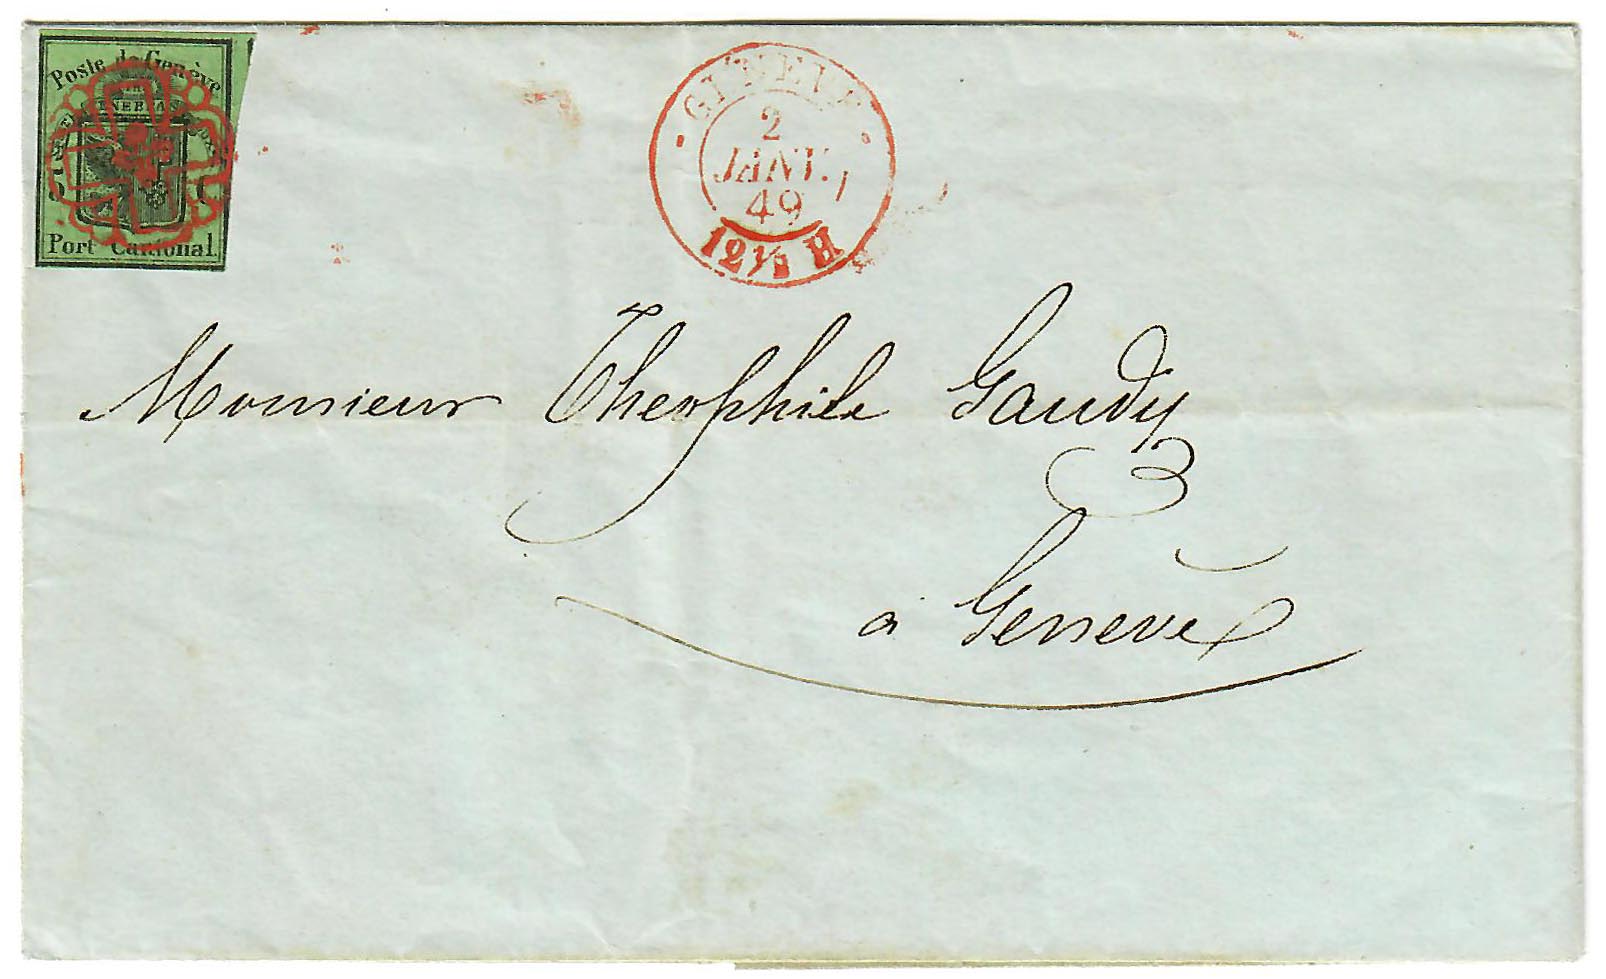 Poste de Genève
Port Cantonal
GENEVE
2
JANV.
49
12½ H
Monsieur Theophile Gaudy
à Geneve